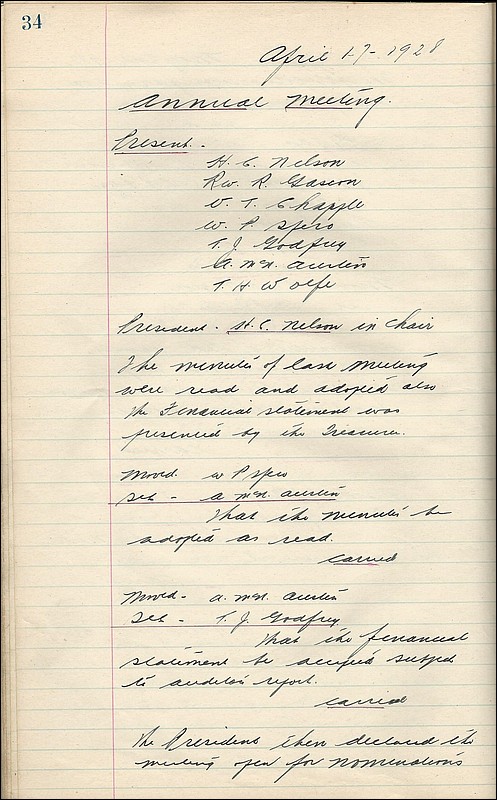 34
April 17-1928
Annual Meeting.
Present -
H. C. Nelson
Rev. R. Gascon
V. T. Chapple
W. P. Spero
T. J. Godfrey
A. McN. Austin
T. H Wolfe
President - H. C. Nelson in chair
The minutes of last meeting
were read and adopted also
the Financial statement was
presented by the Treasurer.
Moved. W P Spero
Sec - A McN. Austin
That the minutes be
adopted as read.
Carried
Moved - A. McN. Austin
Sec - T. J. Godfrey
That the financial
statement be accepted subject
to auditors report.
Carried
The President then declared the
meeting open for nominations